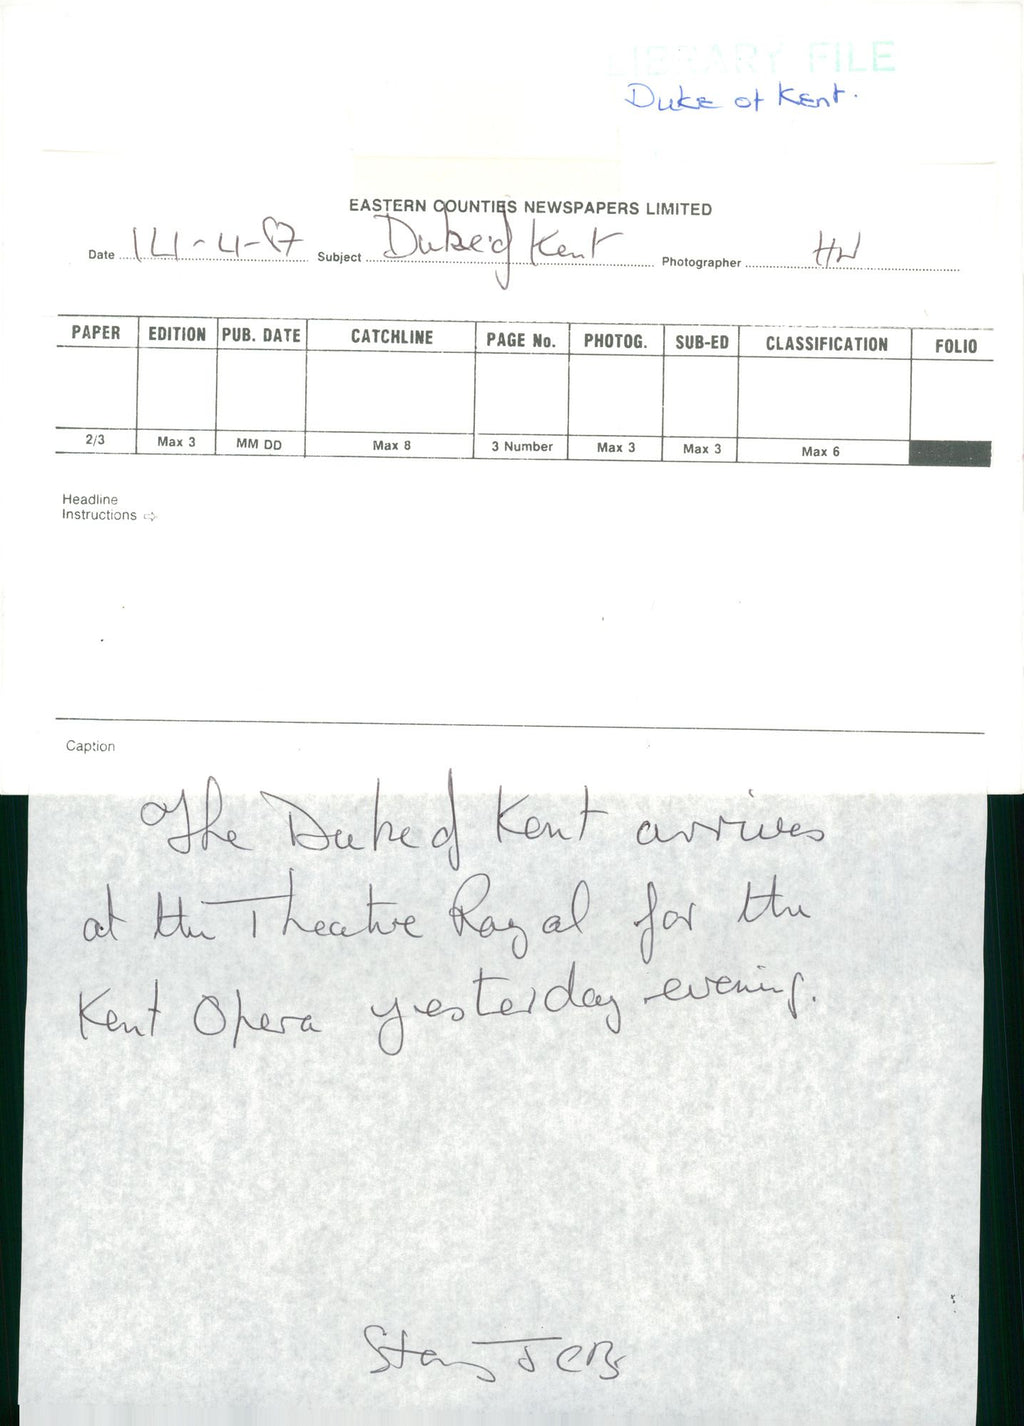 LIBRARY FILE
Duke of Kent.
EASTERN COUNTIES NEWSPAPERS LIMITED
Date 14-4-87 Subject Duke of Kent Photographer HW
PAPER EDITION PUB. DATE CATCHLINE PAGE No. PHOTOG. SUB-ED CLASSIFICATION FOLIO
2/3 Max 3 MM DD Max 8 3 Number Max 3 Max 3 Max 6
Headline
Instructions ⇨
Caption
The Duke of Kent arrives
at the Theatre Royal for the
Kent Opera yesterday evening.
Story JCB